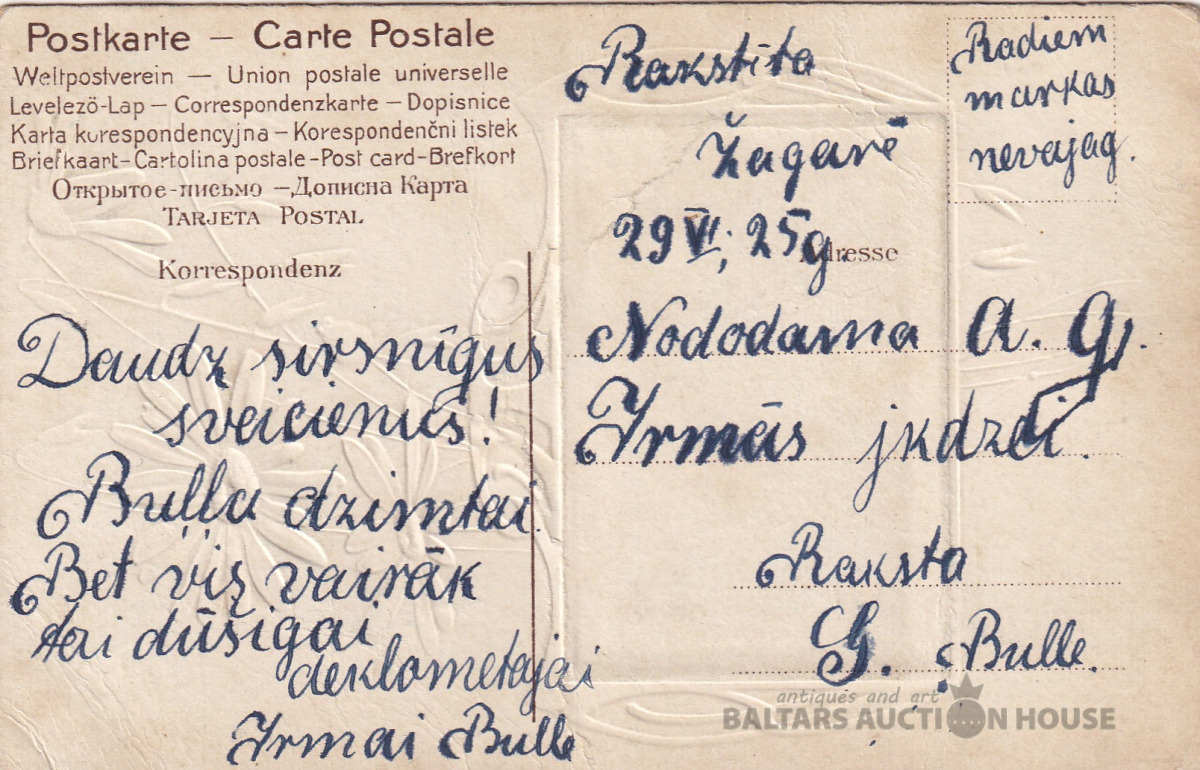 Postkarte — Carte Postale
Weltpostverein — Union postale universelle
Levelező-Lap — Correspondenzkarte — Dopisnice
Karta korespondencyjna — Korespondenčni listek
Briefkaart-Cartolina postale-Post card-Brefkort
Открытое-письмо — Дописна Карта
TARJETA POSTAL
Korrespondenz
Daudz sirsnīgus
sveicienus!
Buļļu dzimtai.
Bet vis vairāk
tai dūšigai
deklometajai
Irmai Bulle
Rakstita
Žagarē
29 VI; 25g.
Adresse
Radiem
markas
nevajag.
Nododama A. g.
Irmās jkdzei.
Raksta
G. Bulle.
antiques and art
BALTARS AUCTION HOUSE